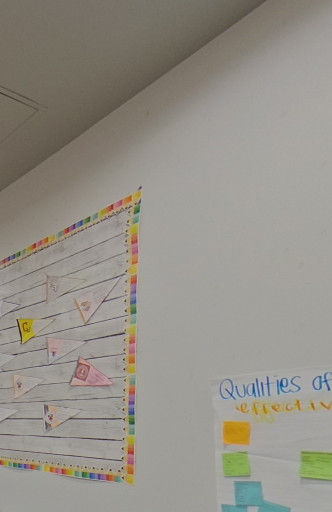 Qualities of
effectiv